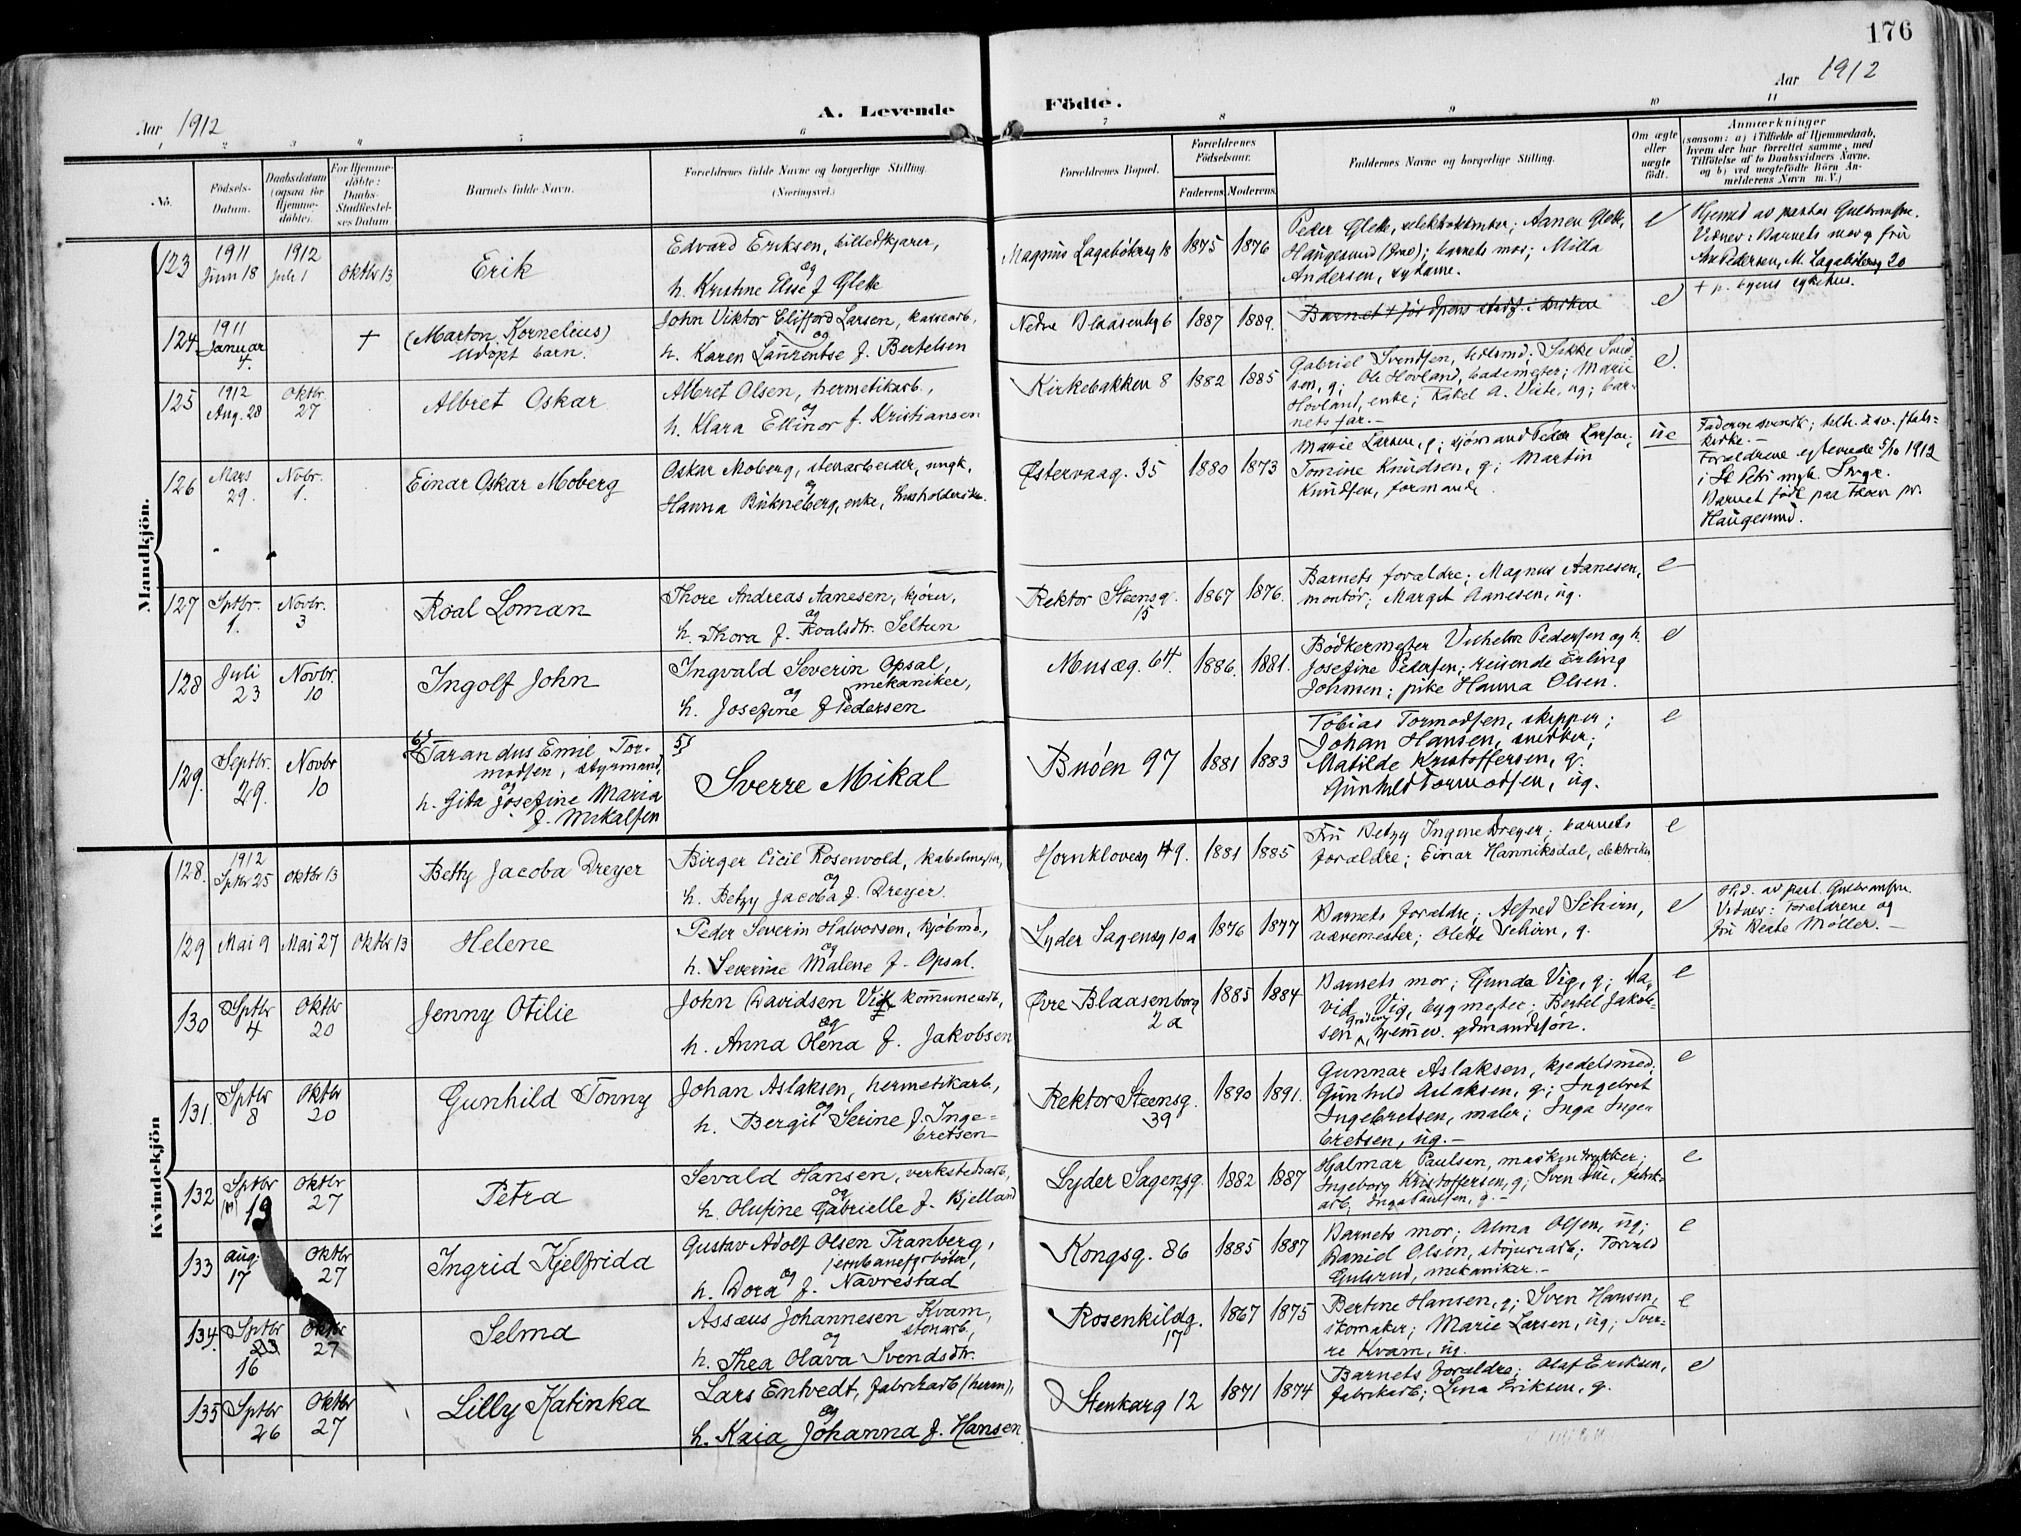 176
Aar 1912
A. Levende Födte.
Aar 1912
1 2 3 4 5 6 7 8 9 10 11
No.
Födsels-
Datum.
Daabsdatum
(ogsaa for
Hjemme-
döbte).
For Hjemme-
döbte:
Daabs-
Stadfæstel-
ses Datum
Barnets fulde Navn.
Forældrenes fulde Navne og borgerlige Stilling.
(Næringsvei.)
Forældrenes Bopæl.
Forældrenes
Födselsaar.
Faderens. Moderens.
Faddernes Navne og borgerlige Stilling.
Om ægte
eller
uægte
födt.
Anmærkninger
(saasom: a) i Tilfælde af Hjemmedaab,
hvem der har forrettet samme, med
Tilföielse af to Daabsvidners Navne.
og b) ved uægtefödte Börn An-
melderens Navn m. V.)
Mandkjön.
123
1911
Juni 18
1912
Juli 1
Oktbr 13
Erik
Edvard Eriksen, billedskjærer,
og
h. Kristine Elise f. Glette
Magnus Lagabøtersg 18
1875
1876
Haugesund; barnets mor; Milla
Andersen, sydame.
e
Vidner: Barnets mor og fru
Pedersen, M. Lagabøtersg 20
124
1911
Januar
4.
+
(Marton Kornelius)
udøpt barn.
John Viktor Clifford Larsen,
og
h. Karen Laurentse f. Bertelsen
Nedre Blaasenbg 6
1887
1889.
e
+ p. byens sykehus.
125
1912
Aug. 28
Oktbr.
27
Albret Oskar
Albret Olsen, hermetikarb.,
og
h. Klara Ellinor f. Kristiansen
Kirkebakken 8
1882
1885
Gabriel Svendsen,
sen, g; Ole Hovland, bademester; Marie
Hovland, enke; Rakel A. ug; bar-
nets far.-
e.
126
Mars
29.
Novbr.
1.
Einar Oskar Moberg
Oskar Moberg, stenarbeider, ungk,
og
Hanna Bukneberg, enke,
Østervaag. 35
1880
1873
Marie Larsen, g; sjømand Peder Larsen;
Tomine Knudsen, g; Martin
Knudsen, formand.
ue
kirke.-
Forældrene egteviede 5/10 1912
i St Petri
Barnet født paa
Haugesund.
127
Sptbr.
1.
Novbr.
3
Roal Loman
Thore Andreas Aanesen, kjører,
og
h. Thora f. Roalsdtr. Seltun
Rektor Steensg.
15
1867
1876.
Barnets forældre; Magnus Aanesen,
montør; Margit Aanesen, ug.
e
128
Juli
23
Novbr.
10
Ingolf John
Ingvald Severin Opsal,
mekaniker,
og
h. Josefine f Pedersen
Musæg. 64.
1886.
1881.
Bødkermester Vilhelm Pedersen og h.
Josefine Pedersen; reisende Erling
Johnsen; pike Hanna Olsen.
e
129.
Septbr.
29.
Novbr
10
6)
Tarandus Emil Tor-
modsen, styrmand,
og
h. Gita Josefine Maria
f. Mikalsen
5)
Sverre Mikal
Buøen 97
1881
1883
Tobias Tormodsen, skipper;
Johan Hansen, snedker;
Matilde Kristoffersen, g.
Gunhild Tormodsen, ug.
e
Kvindekjön
128.
1912
Sptbr 25
Oktbr 13
Betty Jacoba Dreyer
Birger Cicil Rosenvold, kabelmester,
og
h. Betzy Jacoba f. Dreyer.
Hornklovesg 49.
1881
1885
Fru Betzy Dreyer; barnets
forældre; Einar Hanniksdal, elektriker
e
129
Mai 9
Mai 27
Oktbr 13
Helene
Peder Severin Halvorsen, kjøbmd,
og
h. Severine Malene f. Opsal.
Lyder Sagensg 10a
1876
1877
Barnets forældre; Alfred Schirn,
vævemester; Olette Schirn, g.
e
Vidner: Forældrene og
fru Beate Møller.-
130
Sptbr
4
Oktbr
20
Jenny Otilie
John Davidsen Vig kommunearb,
og
h. Anna Olena f. Jakobsen
Øvre Blaasenborg
2a
1885
1884
Barnets mor; Gunda Vig, g; Da-
vid Vig, bygmester; Bertel Jakob-
sen, gdmandssøn.
e
131.
Sptbr
8
Oktbr
20
Gunhild Tonny
Johan Aslaksen, hermetikarb,
og
h. Bergit Serine f. Inge-
bretsen
Rektor Steensg.
39
1890
1891.
Gunnar Aslaksen, kjedelsmed;
Gunhild Aslaksen, g; Ingebret
Ingebretsen, maler; Inga Inge-
bretsen, ug.-
e
132
Sptbr
19
Oktbr
27
Petra
Sevald Hansen, verkstedsarb,
og
h. Olufine Gabrielle f. Kjelland
Lyder Sagensg.
1882
1887
Hjalmar Paulsen, maskintrykker;
Ingeborg Kristoffersen, g; Sven fabrik-
arb, Inga Paulsen, g.-
e
133
Aug.
17
Oktbr
27
Ingrid Kjelfrida
Gustav Adolf Olsen Tranberg,
og
h. Dora f. Navrestad
Kongsg. 86
1885
1887
Barnets mor; Alma Olsen, ug;
Daniel Olsen, Torvald
Gulsrud, mekaniker.-
e
134.
Sptbr
23
16
Oktbr
27
Selma
Assæus Johannesen Kvam,
stenarb.,
og
h. Thea Olava Svendsdtr.
Rosenkildg.
17
1867
1875
Bertine Hansen, g; Sven Hansen,
skomaker; Marie Larsen, ug; Sver-
re Kvam, ug.
e
135
Sptbr
26
Oktbr
27
Lilly Katinka
Lars Entvedt, fabrikarb (herm),
og
h. Kaia Johanna f. Hansen
Stenkarg 12
1871
1874
Barnets forældre; Olaf Eriksen,
fabrikarb; Lina Eriksen, g.
e